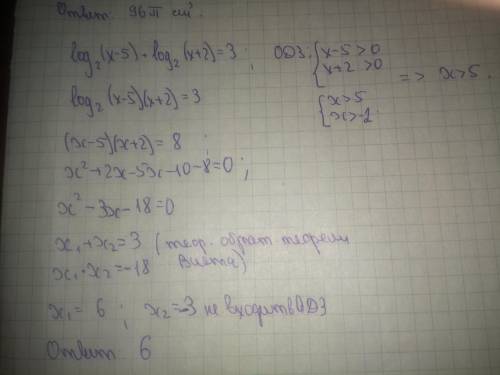 Ответ 96π см².
log₂(x-5)+log₂(x+2)=3; ОДЗ: { x-5>0
x+2>0 => x>5.
log₂(x-5)(x+2)=3
{ x>5
x>-2
(x-5)(x+2)=8;
x²+2x-5x-10-8=0;
x²-3x-18=0
x₁+x₂=3 (теор. обрат. теореме
x₁·x₂=-18 Виета)
x₁=6; x₂=-3 не входит в ОДЗ
Ответ 6